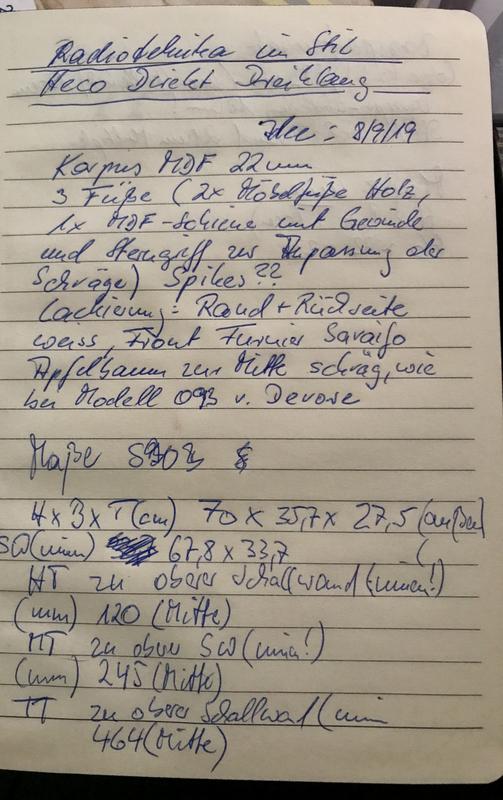 Radiotehnika im Stil
Heco Direkt Dreiklang
Idee = 8/9/19
Korpus MDF 22mm
3 Füße (2x Möbelfüße Holz,
1x MDF-Schiene mit Gewinde
und Sterngriff zur Anpassung der
Schräge) Spikes??
Lackierung = Rand + Rückseite
weiss, Front Furnier Saraifo
Apfelbaum zur Mitte schräg, wie
bei Modell 093 v. Devore
Maße S90B
H x B x T (cm) 70 x 35,7 x 27,5 (außen)
SW (innen) 67,8 x 33,7 (
HT zu oberer Schallwand (innen!)
(mm) 120 (Mitte)
MT zu oberer SW (innen!)
(mm) 245 (Mitte)
TT zu oberer Schallwand (innen
464 (Mitte)